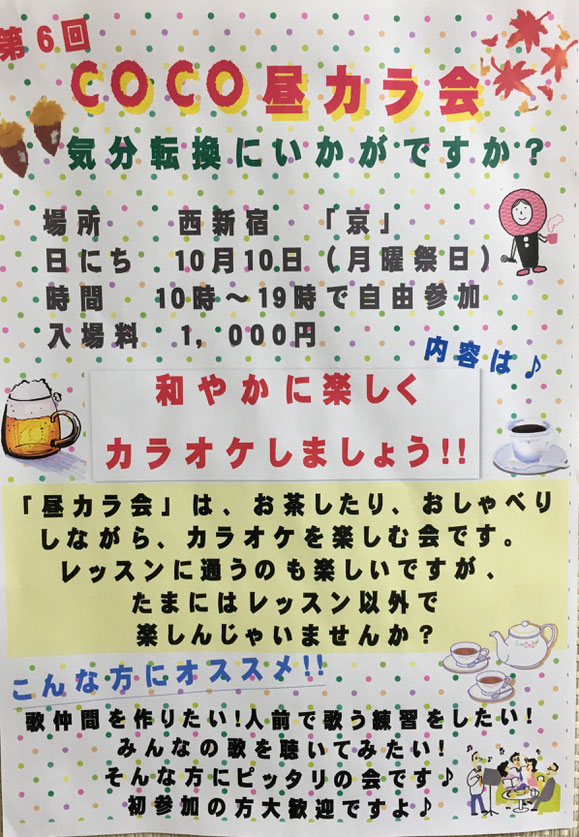 第6回
COCO昼カラ会
気分転換にいかがですか?
場所 西新宿 「京」
日にち 10月10日(月曜祭日)
時間 10時~19時で自由参加
入場料 1,000円
内容は♪
和やかに楽しく
カラオケしましょう!!
「昼カラ会」は、お茶したり、おしゃべり
しながら、カラオケを楽しむ会です。
レッスンに通うのも楽しいですが、
たまにはレッスン以外で
楽しんじゃいませんか?
こんな方にオススメ!!
歌仲間を作りたい!人前で歌う練習をしたい!
みんなの歌を聴いてみたい!
そんな方にピッタリの会です♪
初参加の方大歓迎ですよ♪